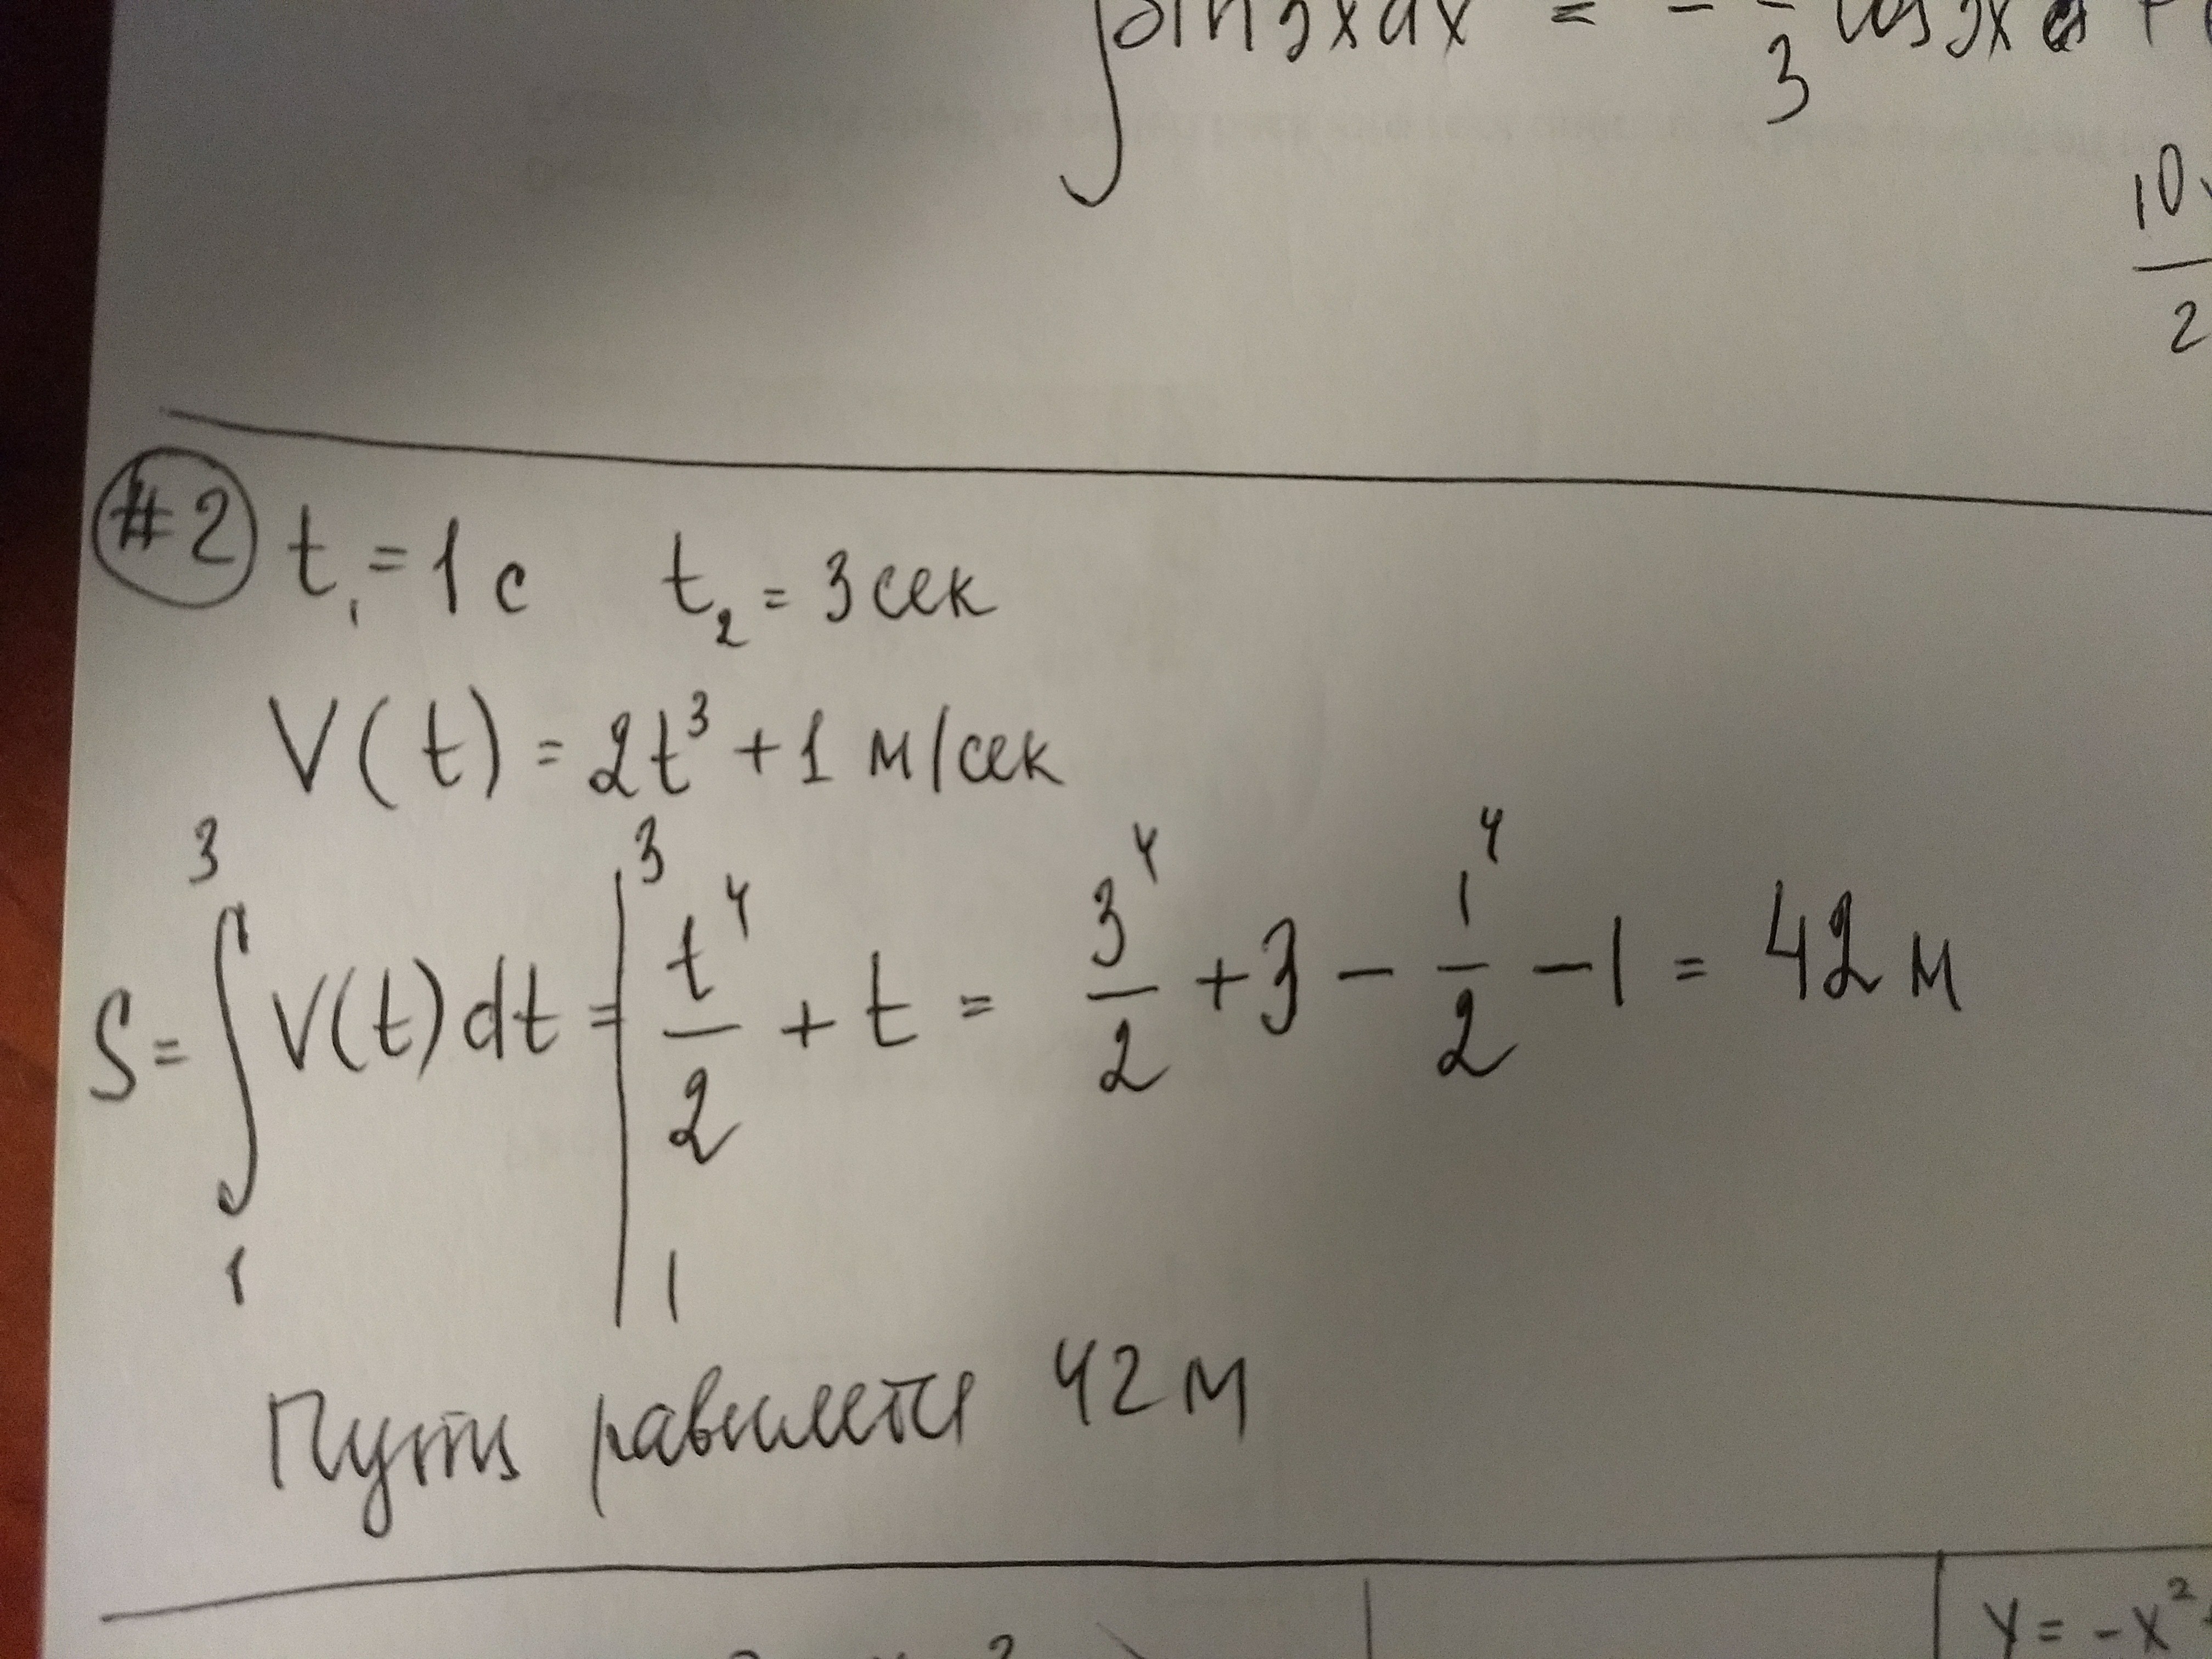 ∫ sin3xdx = - 1/3 cos3x +
10
2
#2 t₁ = 1 с t₂ = 3 сек
V(t) = 2t³ + 1 м/сек
S = ∫₁³ V(t)dt = |₁³ t⁴/2 + t = 3⁴/2 + 3 - 1⁴/2 - 1 = 42 м
Путь равняется 42 м
y = -x²